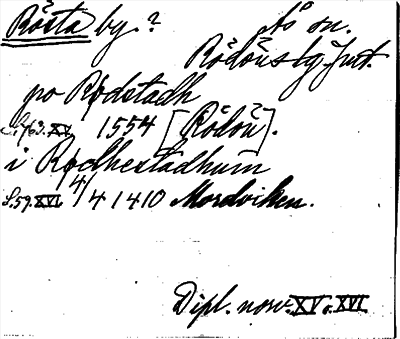 Rösta by? Ås sn.
Rödöns tg. Jmt.
po Rødstadh
S. 163. XV. 1554 [Rödön].
i Rødhestadhum
S. 59. XVI. 4/4 1410 Mordviken.
Dipl. norv. XV o. XVI